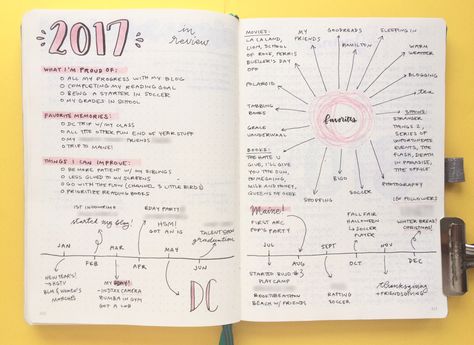 2017
in
review
WHAT I'M PROUD OF:
O ALL MY PROGRESS WITH MY BLOG
O COMPLETING MY READING GOAL
O BEING A STARTER IN SOCCER
O MY GRADES IN SCHOOL
FAVORITE MEMORIES:
O DC TRIP W/ MY CLASS
O ALL THE OTHER FUN END OF YEAR STUFF
O MY FRIENDS
O TRIP TO MAINE!
THINGS I CAN IMPROVE:
O BE MORE PATIENT W/ MY SIBLINGS
O LESS GLUED TO MY SCREENS
O GO WITH THE FLOW (CHANNEL 3 LITTLE BIRDS)
O PRIORITIZE READING BOOKS
start my blog!
BDAY PARTY!
HSM!
GOT AN IG
TALENT SHOW
graduation
JAN
FEB
MAR
APR
MAY
JUN
NEW YEAR'S!
BLM & WOMEN'S
MARCHES
MY BDAY!
ZUMBA IN GYM
GOT A LOB
DC
MOVIES:
LA LA LAND,
LION, SCHOOL
OF ROCK, FERRIS
BUELLER'S DAY
OFF
MY
FRIENDS
GOODREADS
HAMILTON
SLEEPING IN
WARM
WEATHER
BLOGGING
tea
SHOWS:
STRANGER
THINGS 2,
SERIES OF
UNFORTUNATE
EVENTS, THE
FLASH, DEATH
IN PARADISE,
THE OFFICE
PHOTOGRAPHY
SOCCER
BUJO
SHOPPING
BOOKS:
THE HATE U
GIVE, I'LL GIVE
YOU THE SUN,
MILK AND HONEY,
GRACE
VANDERWAAL
POLAROID
favorites
Maine!
FIRST ARC
POP'S PARTY
FALL FAIR
HALLOWEEN
IG SOCCER
PLAYER
1K FOLLOWERS
WINTER BREAK!
CHRISTMAS!
JUL
AUG
SEPT
OCT
NOV
DEC
STARTED BUJO
PLAY CAMP
BEACH W/ FRIENDS
RAFTING
SOCCER
thanksgiving
+FRIENDSGIVING